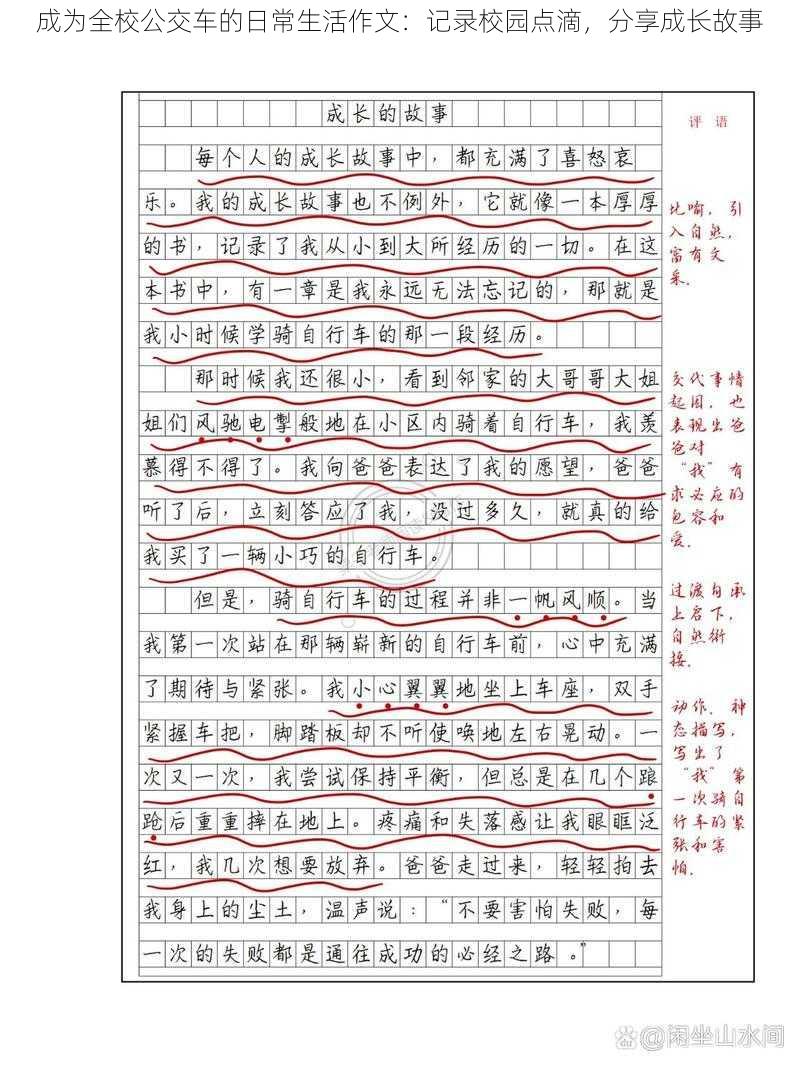 成为全校公交车的日常生活作文：记录校园点滴，分享成长故事
成长的故事
评 语
每个人的成长故事中，都充满了喜怒哀
乐。我的成长故事也不例外，它就像一本厚厚
的书，记录了我从小到大所经历的一切。在这
本书中，有一章是我永远无法忘记的，那就是
我小时候学骑自行车的那一段经历。
那时候我还很小，看到邻家的大哥哥大姐
姐们风驰电掣般地在小区内骑着自行车，我羡
慕得不得了。我向爸爸表达了我的愿望，爸爸
听了后，立刻答应了我，没过多久，就真的给
我买了一辆小巧的自行车。
但是，骑自行车的过程并非一帆风顺。当
我第一次站在那辆崭新的自行车前，心中充满
了期待与紧张。我小心翼翼地坐上车座，双手
紧握车把，脚踏板却不听使唤地左右晃动。一
次又一次，我尝试保持平衡，但总是在几个踉
跄后重重摔在地上。疼痛和失落感让我眼眶泛
红，我几次想要放弃。爸爸走过来，轻轻拍去
我身上的尘土，温声说：“不要害怕失败，每
一次的失败都是通往成功的必经之路。”
比喻，引
入自然，
富有文
采。
交代事情
起因，也
表现出爸
爸对
“我”有
求必应的
包容和
爱。
过渡句承
上启下，
自然衔
接。
动作、神
态描写，
写出了
“我”第
一次骑自
行车的紧
张和害
怕。
@闲坐山水间